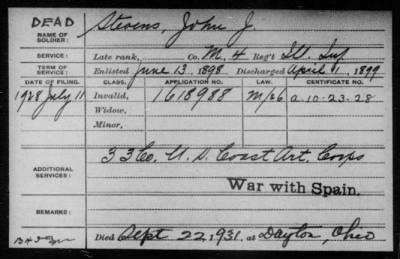 DEAD
NAME OF SOLDIER: Stevens, John J.
SERVICE: Late rank, Co. M, 4 Reg't Ill. Inf
TERM OF SERVICE: Enlisted June 13, 1898 Discharged April 1, 1899
DATE OF FILING. CLASS. APPLICATION NO. CERTIFICATE NO.
1928 July 11 Invalid, 1618988 a-10-23-28
Widow,
Minor,
ADDITIONAL SERVICES: 33 Co. U.S. Coast Art. Corps
War with Spain.
REMARKS:
Died Sept 22, 1931, at Dayton, Ohio